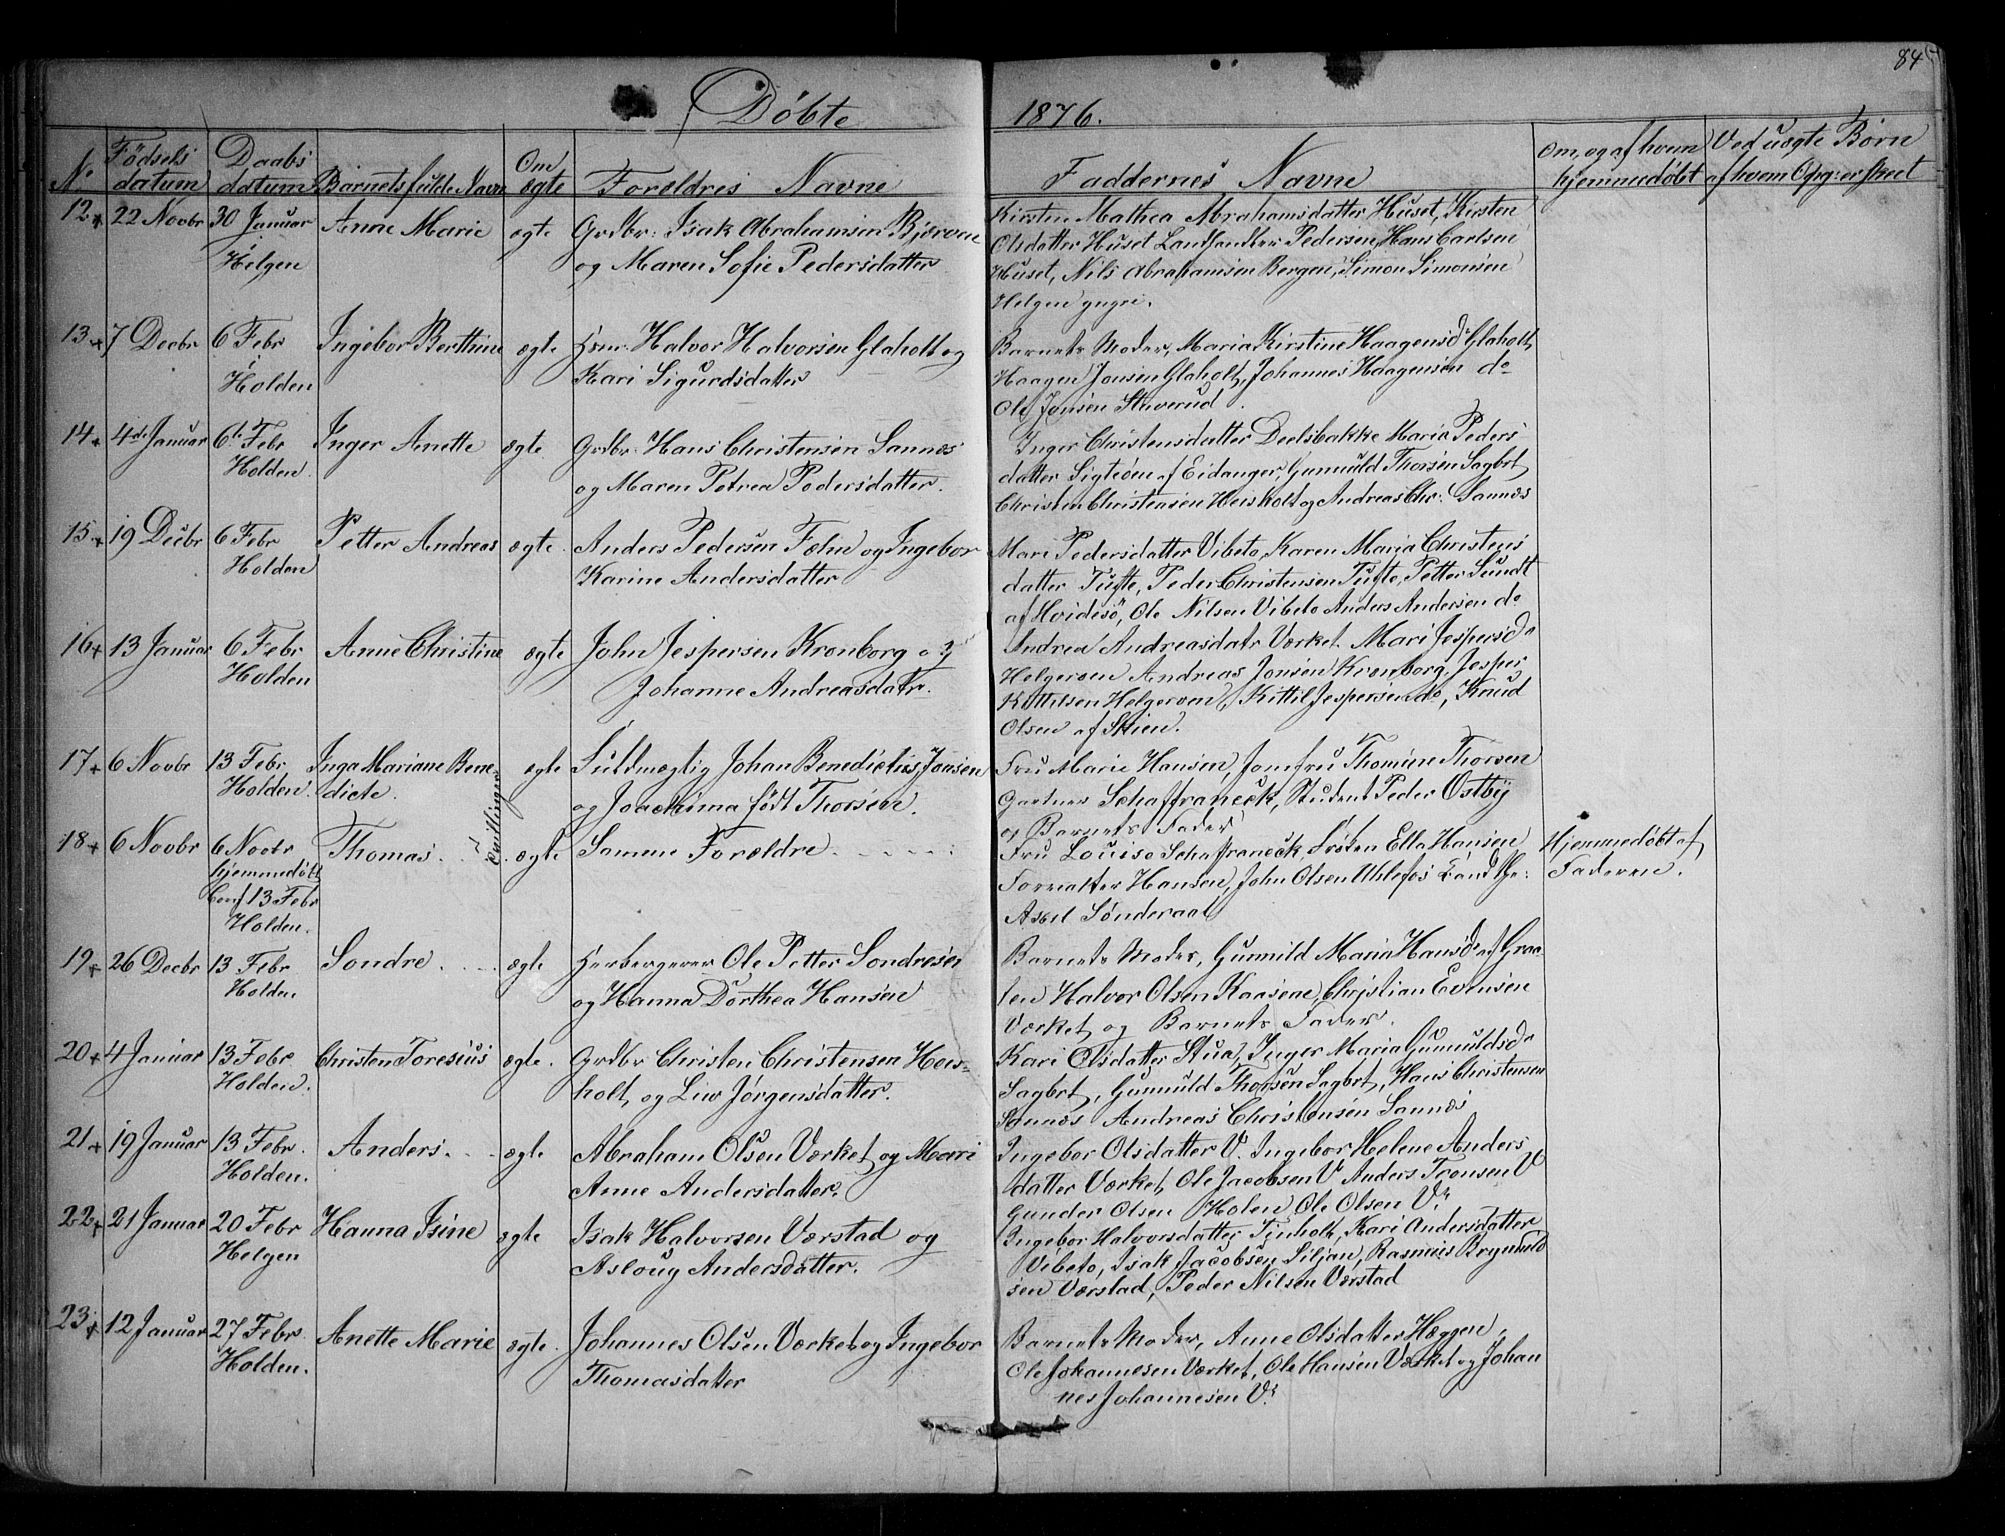 84
Døbte
1876.
No
Fødsels datum
Daabs datum
Barnets fulde Navn
Om ægte
Forældres Navne
Faddernes Navne
Om, og af hvem hjemmedøbt
Ved uægte Børn af hvem Opg: er skeet
12 + 22 Novbr 30 Januar Anne Marie ægte Grdbr: Isak Abrahamsen Bjerven
i Helgen og Maren Sofie Pedersdatter
Kirsten Mathea Abrahamsdatter Huset, Kirsten
Olsdatter Huset Landhandler Pedersen, Hans Carlsen
Huset, Nils Abrahamsen Bergen, Simon Simonsen
Helgen
13 + 7 Decbr 6 Febr Ingebor Berthine ægte Hsm: Halvor Halvorsen Glaholt og
i Holden Kari Sigurdsdatter
Barnets Moder, Maria Kirstine Haagensd Glaholt,
Haagen Jonsen Glaholt, Johannes Haagensen do
Ole Jonsen Staverud.
14 + 4de Januar 6te Febr Inger Anette ægte Grdbr: Hans Christensen Sannes
Holden. og Maren Petrea Pedersdatter.
Inger Christensdatter Deelsbakke Maria Peders
datter Sigteøen af Eidanger, Gunnuld Thorsen Sagbrt,
Christen Christensen Heisholt og Andreas Chr: Sannes
15 + 19 Decbr 6 Febr Petter Andreas ægte. Anders Pedersen Fæhn og Ingebor
Holden Karine Andersdatter
Mari Pedersdatter Vibeto, Karen Maria Christens
datter Tufte, Peder Christensen Tufte, Petter Sundt
af Hvidesö, Ole Nilsen Vibeto Anders Andersen do
16 + 13 Januar 6 Febr Anne Christine ægte John Jespersen Kronborg og
Holden Johanne Andreasdatr.
Andrea Andreasdatr Værket. Mari Jespersdr
Helgeroen Andreas Jonsen Kronborg, Jesper
Kittilsen Helgeroen, Kittil Jespersen do, Knud
Olsen af Skien.
17 + 6 Novbr 13 Febr Inga Mariane Bene ægte Fuldmægtig Johan Benedictus Jonsen
Holden. dicte. og Joachima født Thorsen.
Tvillinger
Fru Marie Hansen, Jomfru Thomine Thorsen
Gartner Schaffraneck, Student Peder Ostby
og Barnets Fader
18 + 6 Novbr 6 Novbr Thomas. ægte Samme Forældre
hjemmedøbt
Conf 13 Febr
Holden.
Fru Louise Schaffraneck, Frøken Ella Hansen
Forvalter Hansen, John Olsen Uhlefos
Axel Sønderaal
Hjemmedøbt af
Faderen.
19 + 26 Decbr 13 Febr Sondre. ægte Herbergerer Ole Petter Sondresen
Holden og Hanna Dorthea Hansen
Barnets Moder, Gunnild Maria Hansdr af Graa-
ten Halvor Olsen Kaasene, Christian Evensen
Værket og Barnets Fader.
20 + 4 Januar 13 Febr Christen Toresius ægte. Grdbr Christen Christensen Heis-
Holden. holt, og Liv Jørgensdatter.
Kari Olsdatter Stua, Inger Maria Gunnuldsdr
Sagbrt, Gunnuld Thorsen Sagbrt, Hans Christensen
Sannes Andreas Christensen Sannes
21 + 19 Januar 13 Febr. Anders. ægte Abraham Olsen Værket og Mari
Holden. Anne Andersdatter.
Ingebor Olsdatter V. Ingebor Helene Anders
datter Værket, Ole Jacobsen V Anders Tronsen V
Gunder Olsen Holen Ole Olsen Vr
22 + 21 Januar 20 Febr Hanna Isine ægte Isak Halvorsen Værstad og
Helgen Asloug Andersdatter.
Ingebor Halvorsdatter Tinholt, Kari Andersdatter
Vibeto, Isak Jacobsen Siljan, Rasmus Brynuld
sen Værstad, Peder Nilsen Værstad
23 + 12 Januar 27 Febr Anette Marie ægte. Johannes Olsen Værket og Ingebor
Holden. Thomasdatter
Barnets Moder, Anne Olsdatter Hæggen,
Ole Johannesen Værket, Ole Hansen Værket og Johan
nes Johannesen Vr